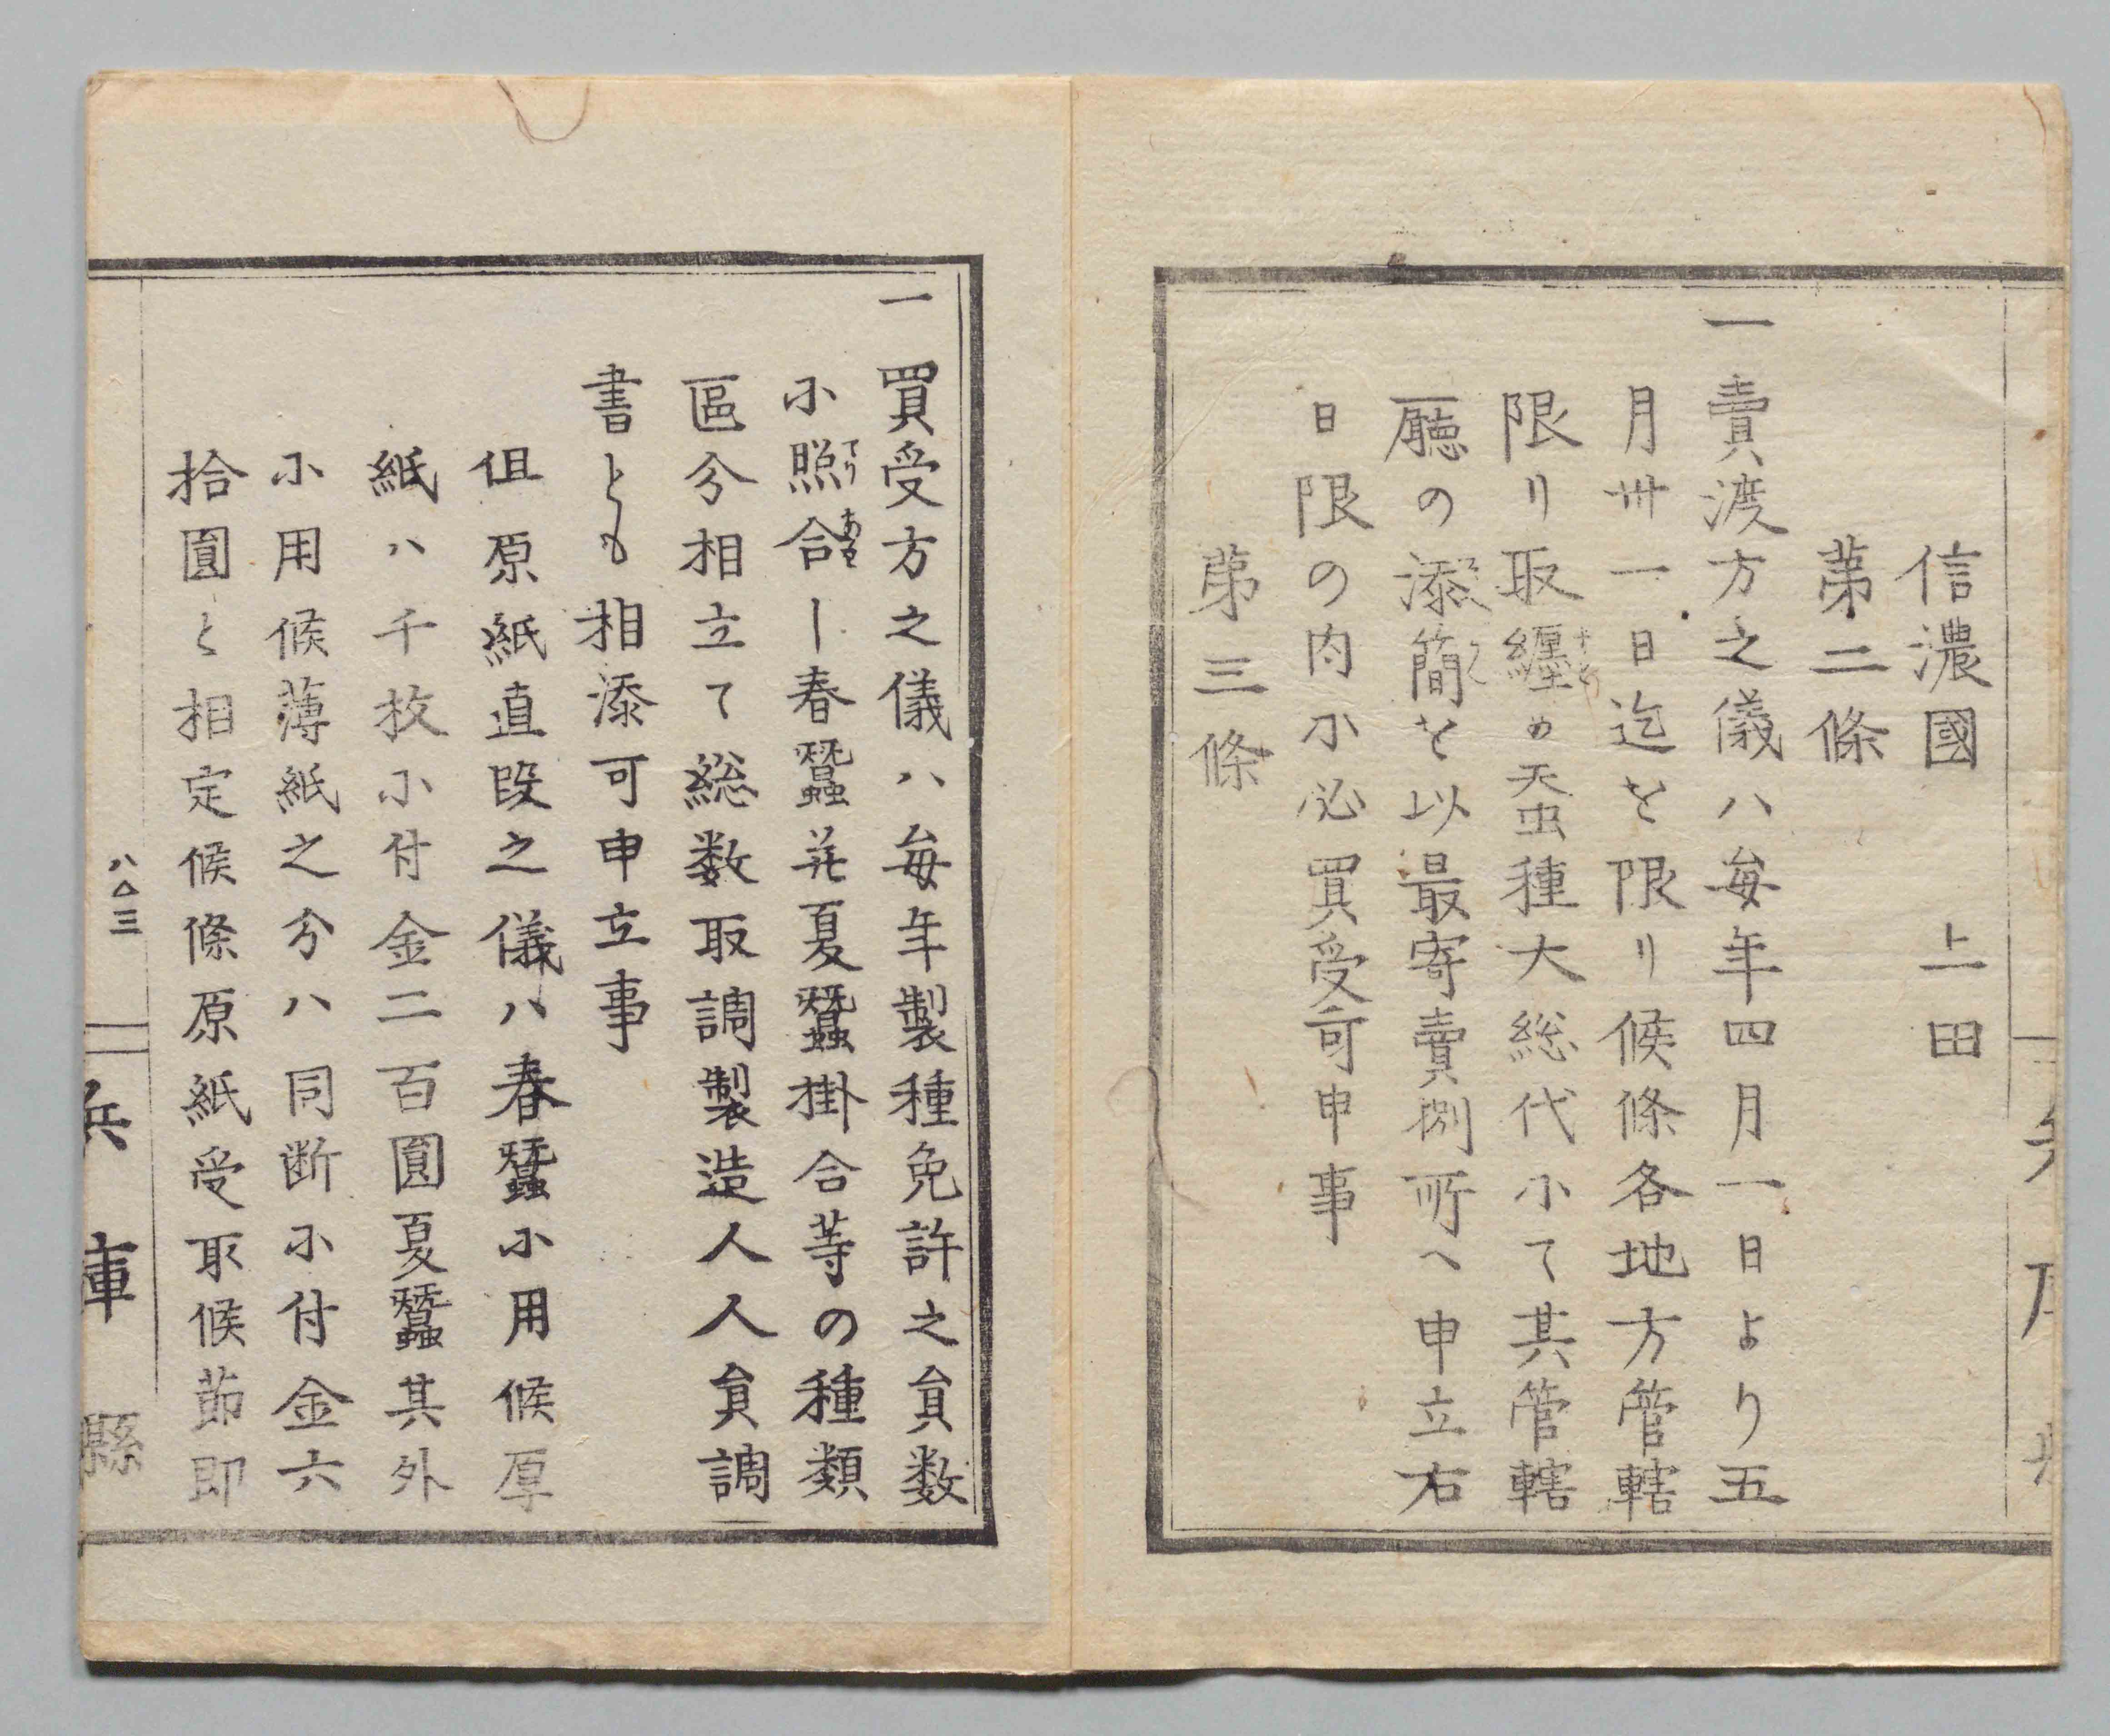 信濃國　上田
第二條
一賣渡方之儀ハ毎年四月一日より五
月卅一日迄を限リ候條各地方管轄
限リ取纒め蚕種大総代小て其管轄
廳の添簡を以最寄賣捌所へ申立右
日限の内小必買受可申事
第三條
一買受方之儀ハ毎年製種免許之員数
小照合し春蠶并夏蠶掛合等の種類
區分相立て総数取調製造人人員調
書とも相添可申立事
但原紙直段之儀ハ春蠶小用候厚
紙ハ千枚小付金二百圓夏蠶其外
小用候薄紙之分ハ同断小付金六
拾圓と相定候條原紙受取候節即
八ノ三
兵庫縣